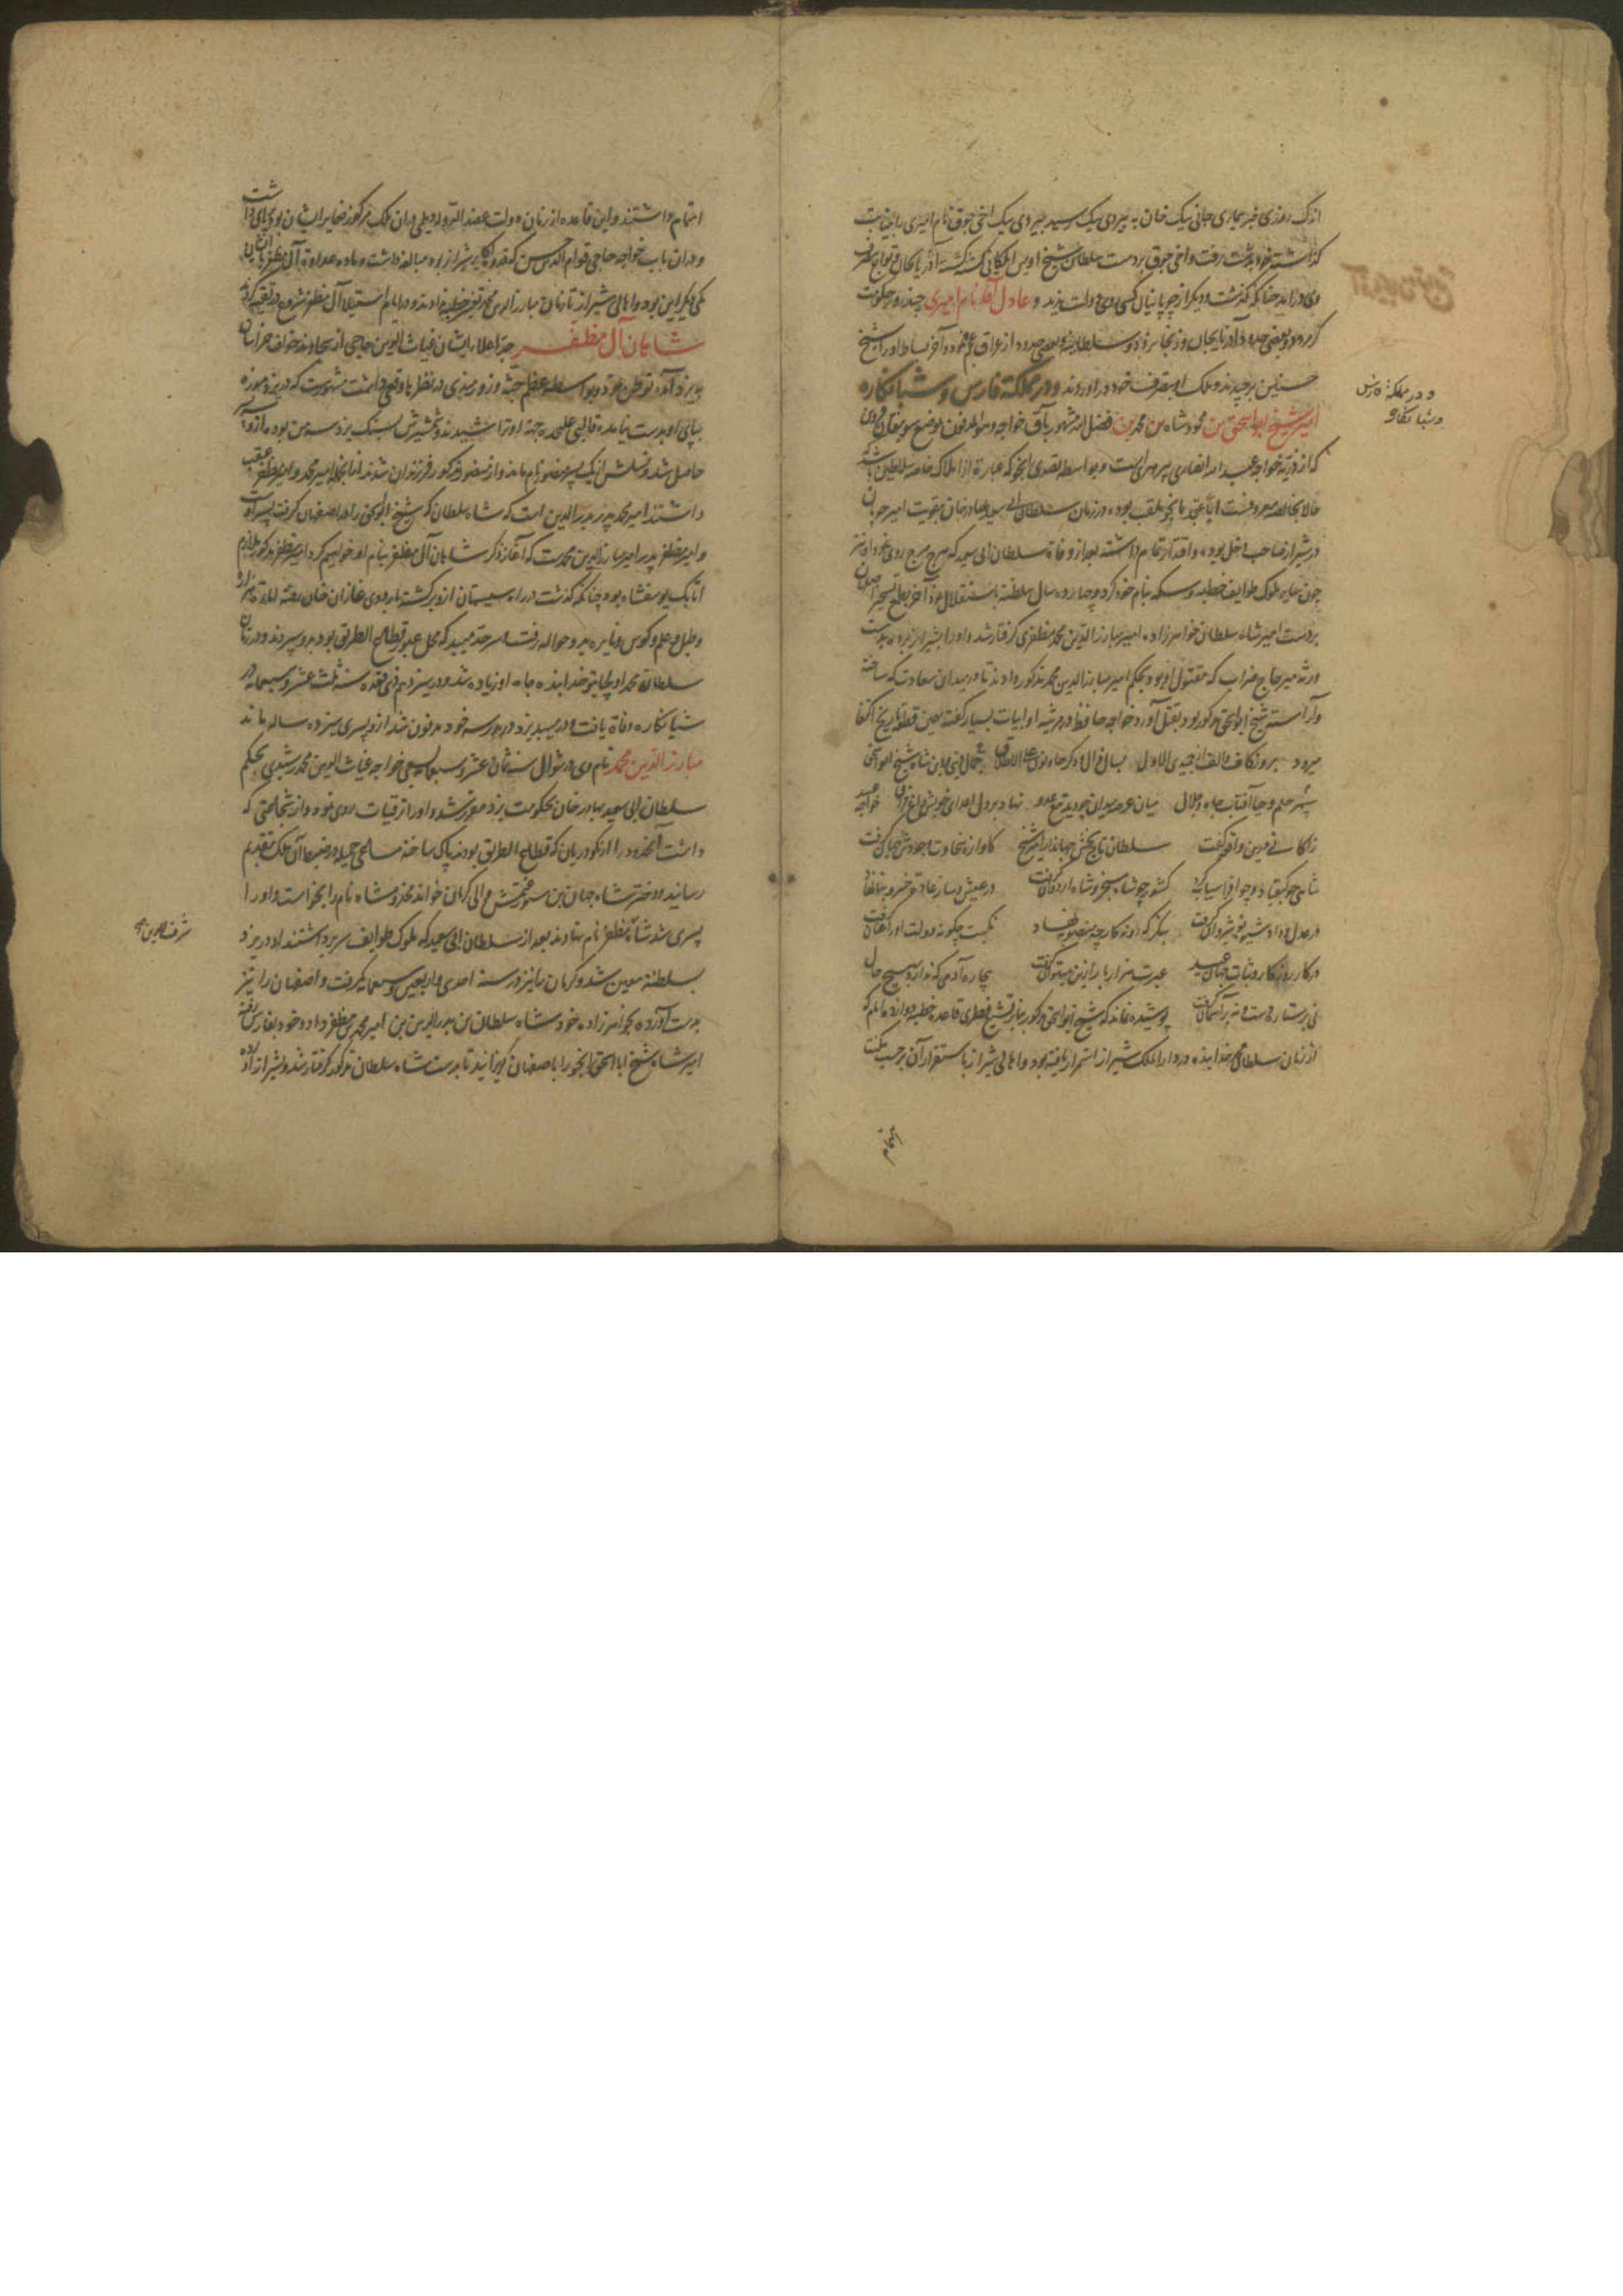 اندک روزی خبر بیماری جانی بیک خان به بیردی بیک رسید بیردی بیک اخی جوق نام امیری را به نیابت
گذاشته خود بدشت رفت و اخی جوق بر دست سلطان شیخ اویس ایلکانی کشته گشته آذربایجان و توابع بتصرف
وی درآمد چنانکه گذشت و دیگر از چوپانیان کسی روی دولت ندید و عادل آقا نام امیری چند روز حکومت
کرده بود و بعضی حدود آذربایجان و زنجانرود و سلطانیه و بعضی حدود از عراق عجم و آخر بساط او را شیخ
حسنیان برچیدند و ملک او بتصرف خود درآوردند و در مملکة فارس و شبانکاره
امیر شیخ ابو اسحق بن محمود شاه بن محمد بن فضل الله مشهور بآق خواجه
که از ذریه خواجه عبد الله انصاری پیر هری است و بواسطه تصدی انجو که عبارة از املاک خاصه سلاطین باشد
حالا بخالصه معروفست اباً عن جد بانجو ملقب بوده در زمان سلطان ابی سعید بهادر خان بتقویت امیر چوپان
در شیراز صاحب دخل بوده و اقتدار تمام داشتند بعد از وفاة سلطان ابی سعید که هرج مرج روی نمود او نیز
چون سایر ملوک طوایف خطبه و سکه بنام خود کرد و چهارده سال سلطنة باستقلال نمود آخر بطمع تسخیر اصفهان
بر دست امیر شاه سلطان خواهرزاده امیر مبارز الدین محمد مظفری گرفتار شد و او را بشیراز برده بدست
ورثه میر حاج ضراب که مقتول او بود بحکم امیر مبارز الدین محمد مذکور دادند تا در میدان سعادت که ساخته
و آراسته شیخ ابو اسحق مذکور بود بقتل آورد خواجه حافظ در مرثیه او ابیات بسیار گفته بدین قطعه تاریخ اکتفا
میرود بروز کاف و الف از جمیدی الاول بسال ذال و دگر حا و نون علی الاطلاق جمال دنی و دین شاه شیخ ابو اسحق
سپهر حلم و حیا آفتاب جاه و جلال میان عرصه میدان خود بتیغ عدو نهاد بر دل احبای خویش داغ فراق خواجه عبید
زاکانی قزوین واقعه گفت سلطان تاج بخش جهاندار امیر شیخ کاوازه سخاوت و جودش جهان گرفت
شاهی چو کیقباد و چو افراسیاب گرد کشور چو شاه سنجر و شاه اردوان گرفت در عیش و ساز عادت خسرو بنا نهاد
در عدل و داد شیوه نوشیروان گرفت بنگر که روزگار چه منصوبه نهاد نکبت چگونه دولت او را عنان گرفت
در کار روزگار و ثبات جهان عبید عبرت هزار بار ازین میتوان گرفت بیچاره آدمی که ندارد بهیچ حال
نی بر ستاره دست و نه بر آسمان گرفت پوشیده نماند که شیخ ابو اسحق مذکور بنابر تشیع فطری قاعده خطبه دوازده امام که
از زمان سلطان محمد خدابنده در دار الملک شیراز استمرار یافته بود و اهالی شیراز باستقرار آن
اهتمام
و در مملکة فارس
و شبانکاره
اهتمام داشتند و این قاعده از زمان دولت عضد الدوله دیلمی در آن ملک مرکوز ضمایر ایشان بود برپای داشت
و در آن باب خواجه حاجی قوام الدین حسن که قدوه اکابر شیراز بود مبالغه داشت و ماده عداوة آل مظفر با ایشان
یکی دیگر این بود و اهالی شیراز تا زمان مبارز الدین محمد
شاهان آل مظفر جد اعلاء ایشان غیاث الدین حاجی از سجاوند خواف خراسان
به یزد آمده توطن نمود و بواسطه عظم جثه و زورمندی در نظرها وقعی داشت مشهورست که در یزد موزه
بپای او بدست نیامده قالبی علیحده جهته او تراشیدند و شمشیرش بسنگ یزد سه من بوده
حاصل شد و نسلش از یک پسر منصور نام ماند و از منصور مذکور فرزندان شدند از آنجمله امیر محمد و امیر مظفر عقب
داشتند امیر محمد پدر بدر الدین است که شاه سلطان که شیخ ابو اسحق را در اصفهان گرفت پسر اوست
و امیر مظفر پدر امیر مبارز الدین محمدست که آغاز ذکر شاهان آل مظفر بنام او خواهیم کرد امیر مظفر مذکور ملازم
اتابک یوسفشاه بود چنانکه گذشت در راه سیستان ازو برگشته باردوی غازان خان رفته امارة هزاره
و طبل و علم و کوس و نایره بدو حواله رفت و سرحد میبد که محل عبور قطاع الطریق بود بدو سپردند و در زمان
سلطان محمد اولجایتو خدابنده جاه او زیاده شد و در سیزدهم ذی قعده سنه ثلث عشر و سبعمائه در
شبانکاره وفاة یافت و در میبد یزد در مدرسه خود مدفون شد ازو پسری سیزده ساله ماند
مبارز الدین محمد نام وی در شوال سنه ثمان عشر و سبعمائه بسعی خواجه غیاث الدین محمد رشیدی بحکم
سلطان ابی سعید بهادر خان بحکومت یزد مفوض شد و او را ترقیات روی نمود و از شجاعتی که
داشت آنحدود را از نکودریان که قطاع الطریق بودند پاک ساخته مساعی جمیله در ضبط آن ملک بتقدیم
رسانید و دختر شاه جهان بن سیورغتمش والی کرمان خواند مخدومشاه نام را بخواست و او را
پسری شد شاه مظفر نام نهادند بعد از سلطان ابی سعید که ملوک طوایف سر برداشتند او در یزد
بسلطنة معین شد و کرمان را نیز در سنه احدی و اربعین و سبعمائه بگرفت و اصفهان را نیز
بدست آورده بخواهرزاده خود شاه سلطان بن بدر الدین بن امیر محمد بن مظفر داد و خود بفارس رفته
امیر شاه شیخ ابا اسحق انجو را باصفهان گریزانید تا بدست شاه سلطان مذکور گرفتار شد و شیراز
شرف الدین